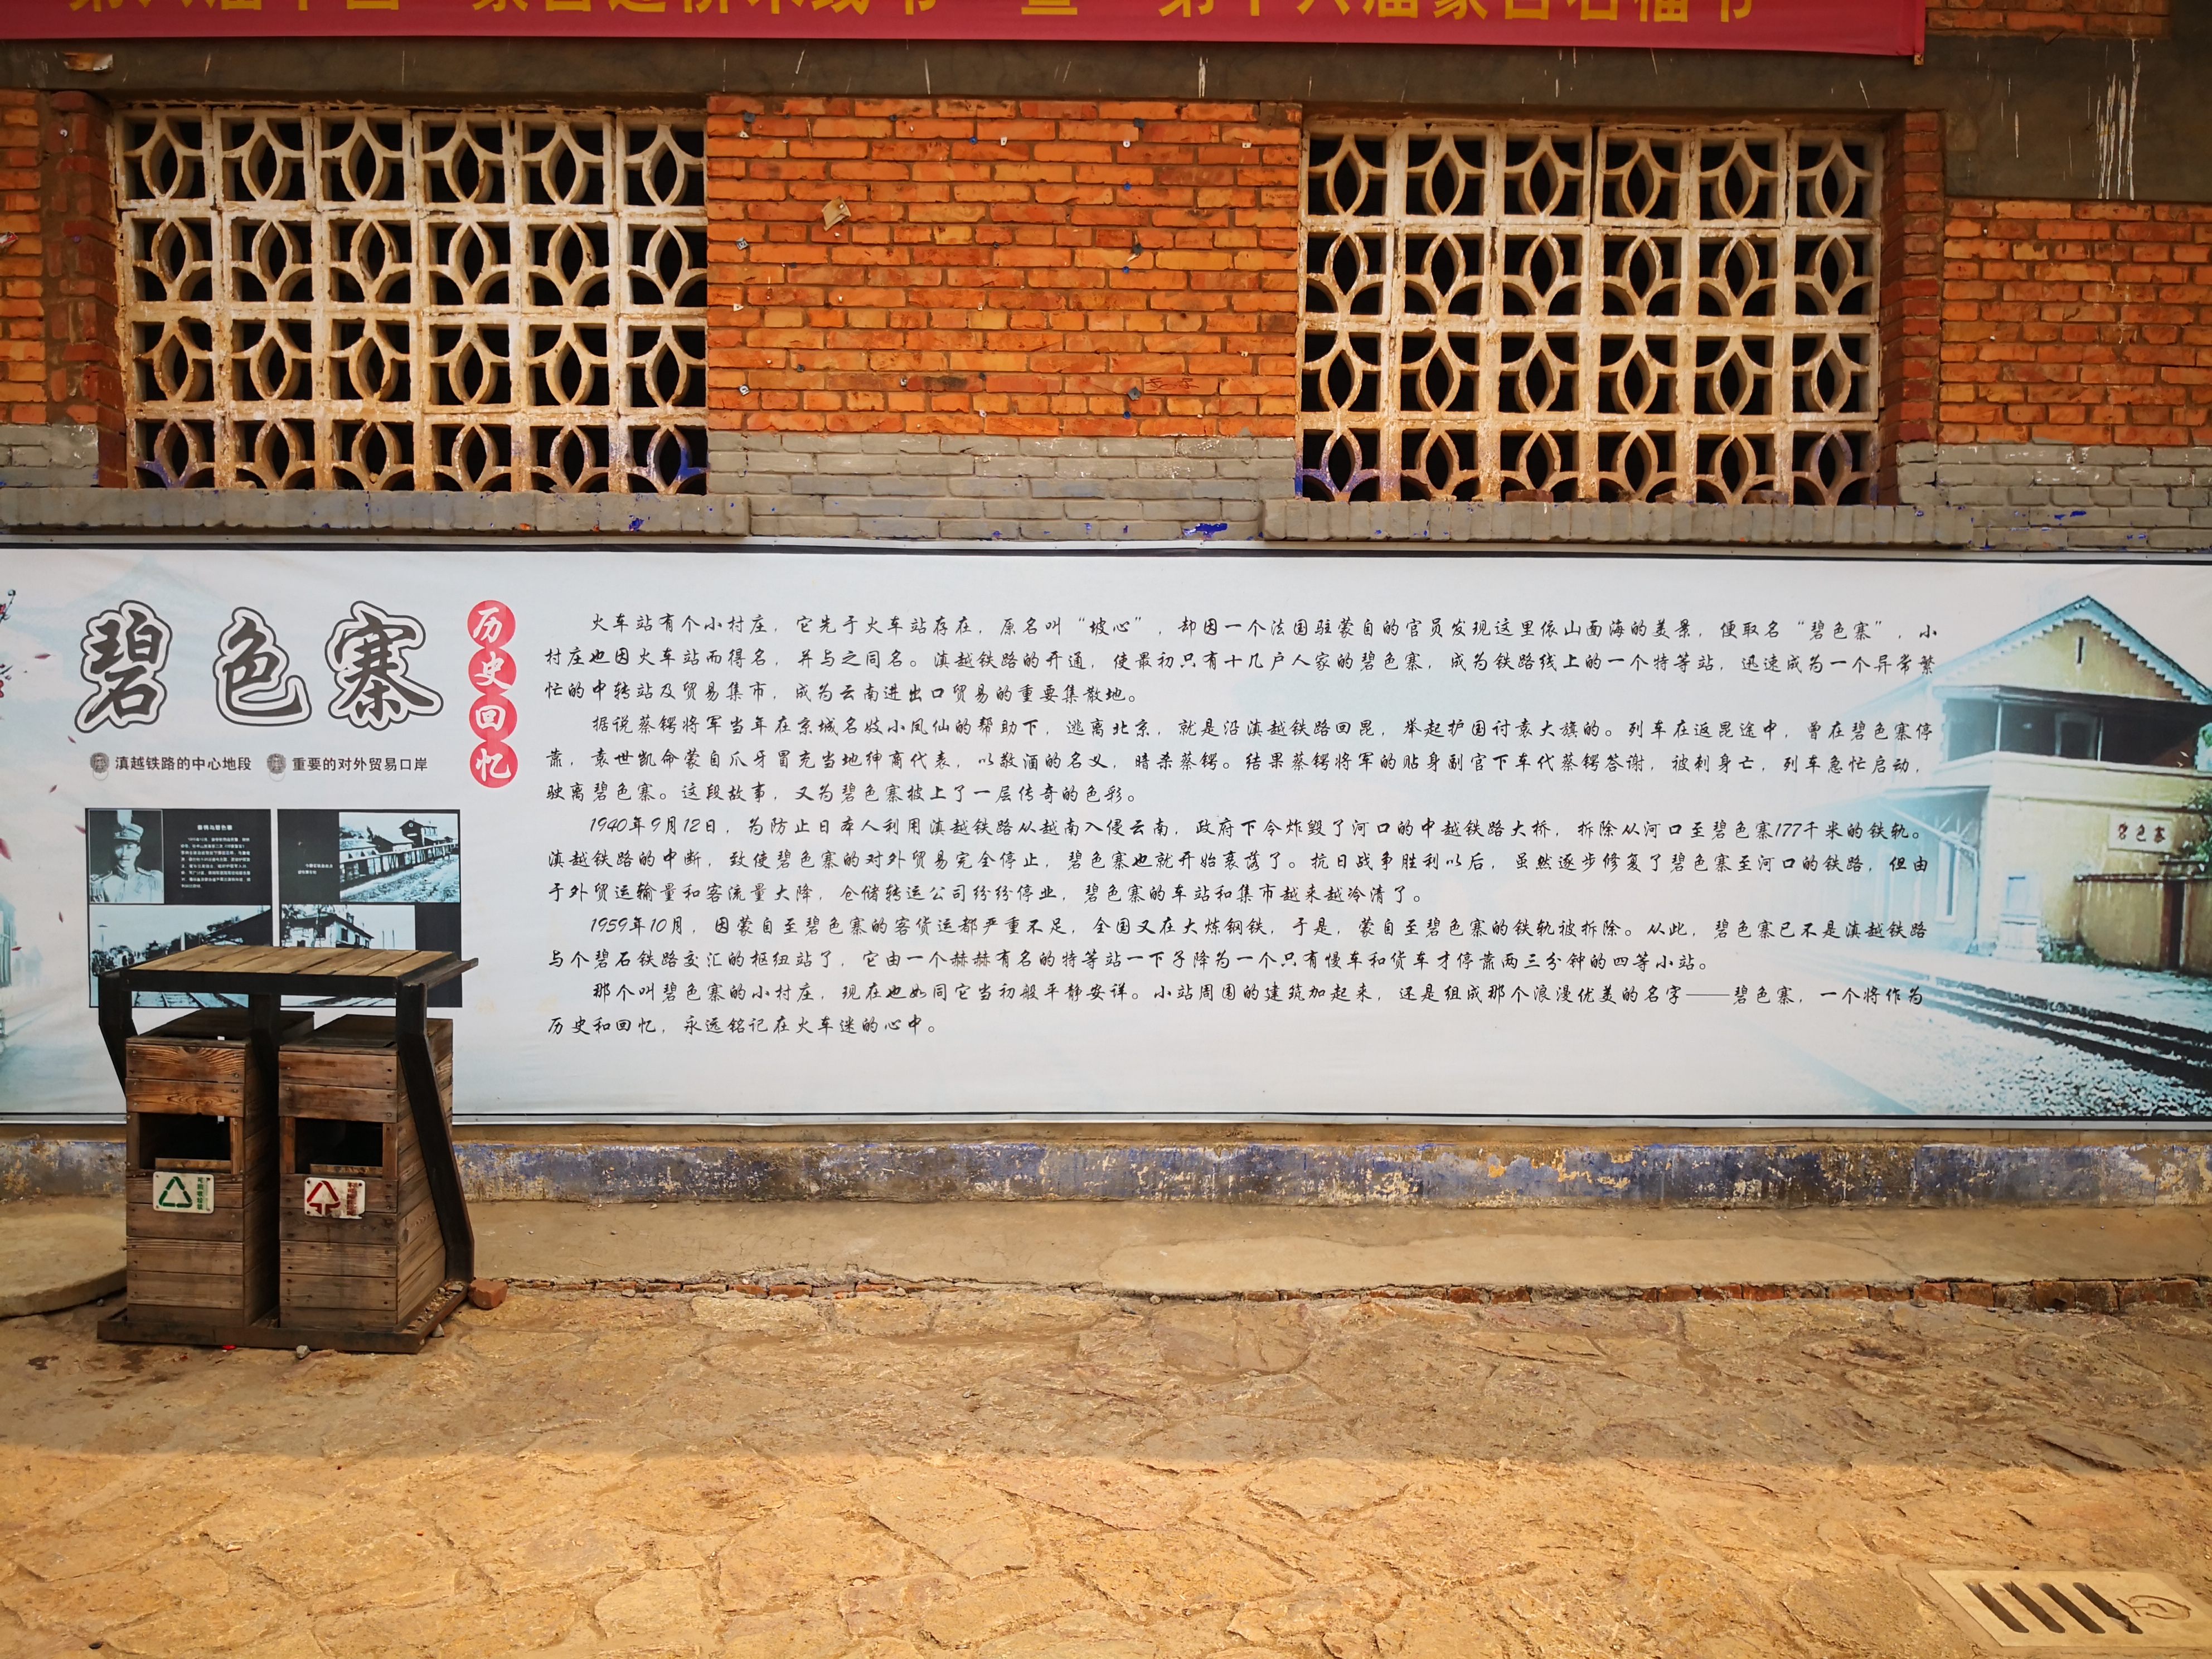 碧色寨
历史回忆
滇越铁路的中心地段 重要的对外贸易口岸
火车站有个小村庄，它先于火车站存在，原名叫“坡心”，却因一个法国驻蒙自的官员发现这里依山面海的美景，便取名“碧色寨”，小
村庄也因火车站而得名，并与之同名。滇越铁路的开通，使最初只有十几户人家的碧色寨，成为铁路线上的一个特等站，迅速成为一个异常繁
忙的中转站及贸易集市，成为云南进出口贸易的重要集散地。
据说蔡锷将军当年在京城名妓小凤仙的帮助下，逃离北京，就是沿滇越铁路回昆，举起护国讨袁大旗的。列车在返昆途中，曾在碧色寨停
靠，袁世凯命蒙自爪牙冒充当地绅商代表，以敬酒的名义，暗杀蔡锷。结果蔡锷将军的贴身副官下车代蔡锷答谢，被刺身亡，列车急忙启动，
驶离碧色寨。这段故事，又为碧色寨披上了一层传奇的色彩。
1940年9月12日，为防止日本人利用滇越铁路从越南入侵云南，政府下令炸毁了河口的中越铁路大桥，拆除从河口至碧色寨177千米的铁轨。
滇越铁路的中断，致使碧色寨的对外贸易完全停止，碧色寨也就开始衰落了。抗日战争胜利以后，虽然逐步修复了碧色寨至河口的铁路，但由
于外贸运输量和客流量大降，仓储转运公司纷纷停业，碧色寨的车站和集市越来越冷清了。
1959年10月，因蒙自至碧色寨的客货运都严重不足，全国又在大炼钢铁，于是，蒙自至碧色寨的铁轨被拆除。从此，碧色寨已不是滇越铁路
与个碧石铁路交汇的枢纽站了，它由一个赫赫有名的特等站一下子降为一个只有慢车和货车才停靠两三分钟的四等小站。
那个叫碧色寨的小村庄，现在也如同它当初般平静安详。小站周围的建筑加起来，还是组成那个浪漫优美的名字——碧色寨，一个将作为
历史和回忆，永远铭记在火车迷的心中。
碧色寨